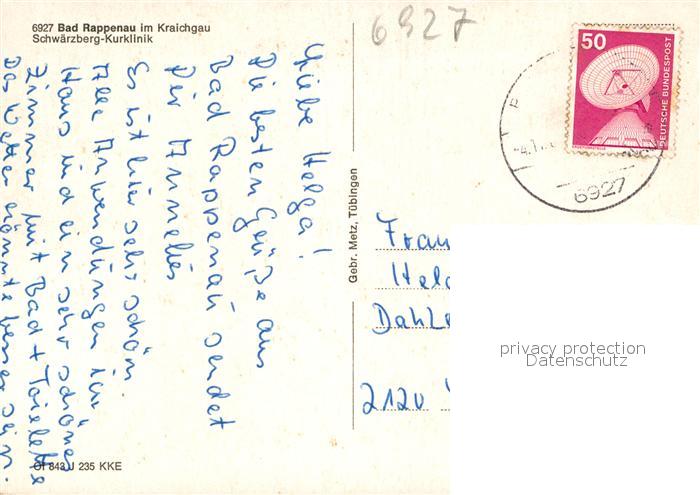 6927 Bad Rappenau im Kraichgau
Schwärzberg-Kurklinik
6927
50
DEUTSCHE BUNDESPOST
6927
Liebe Helga!
Die besten Grüße aus
Bad Rappenau sendet
Dir Annelies
Es ist hier sehr schön.
Alle Anwendungen im
Haus und ein sehr schönes
Zimmer mit Bad + Toilette
Das Wetter könnte besser sein.
Gebr. Metz, Tübingen
Frau
Helg
Dahle
2120
privacy protection
Datenschutz
Of 843 J 235 KKE